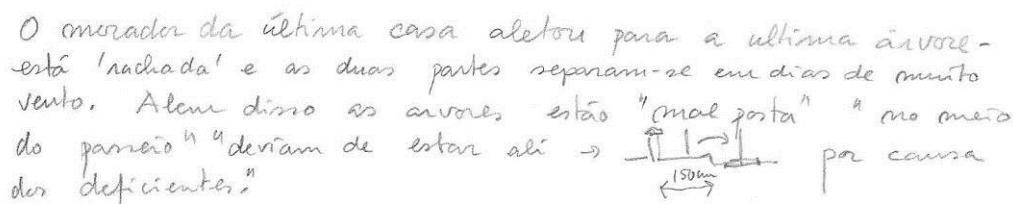 O morador da última casa aletou para a ultima árvore-
está 'rachada' e as duas partes separam-se em dias de muito
vento. Alem disso as arvores estão "mal posta" "no meio
do passeio" "deviam de estar ali → por causa
dos deficientes."
150cm